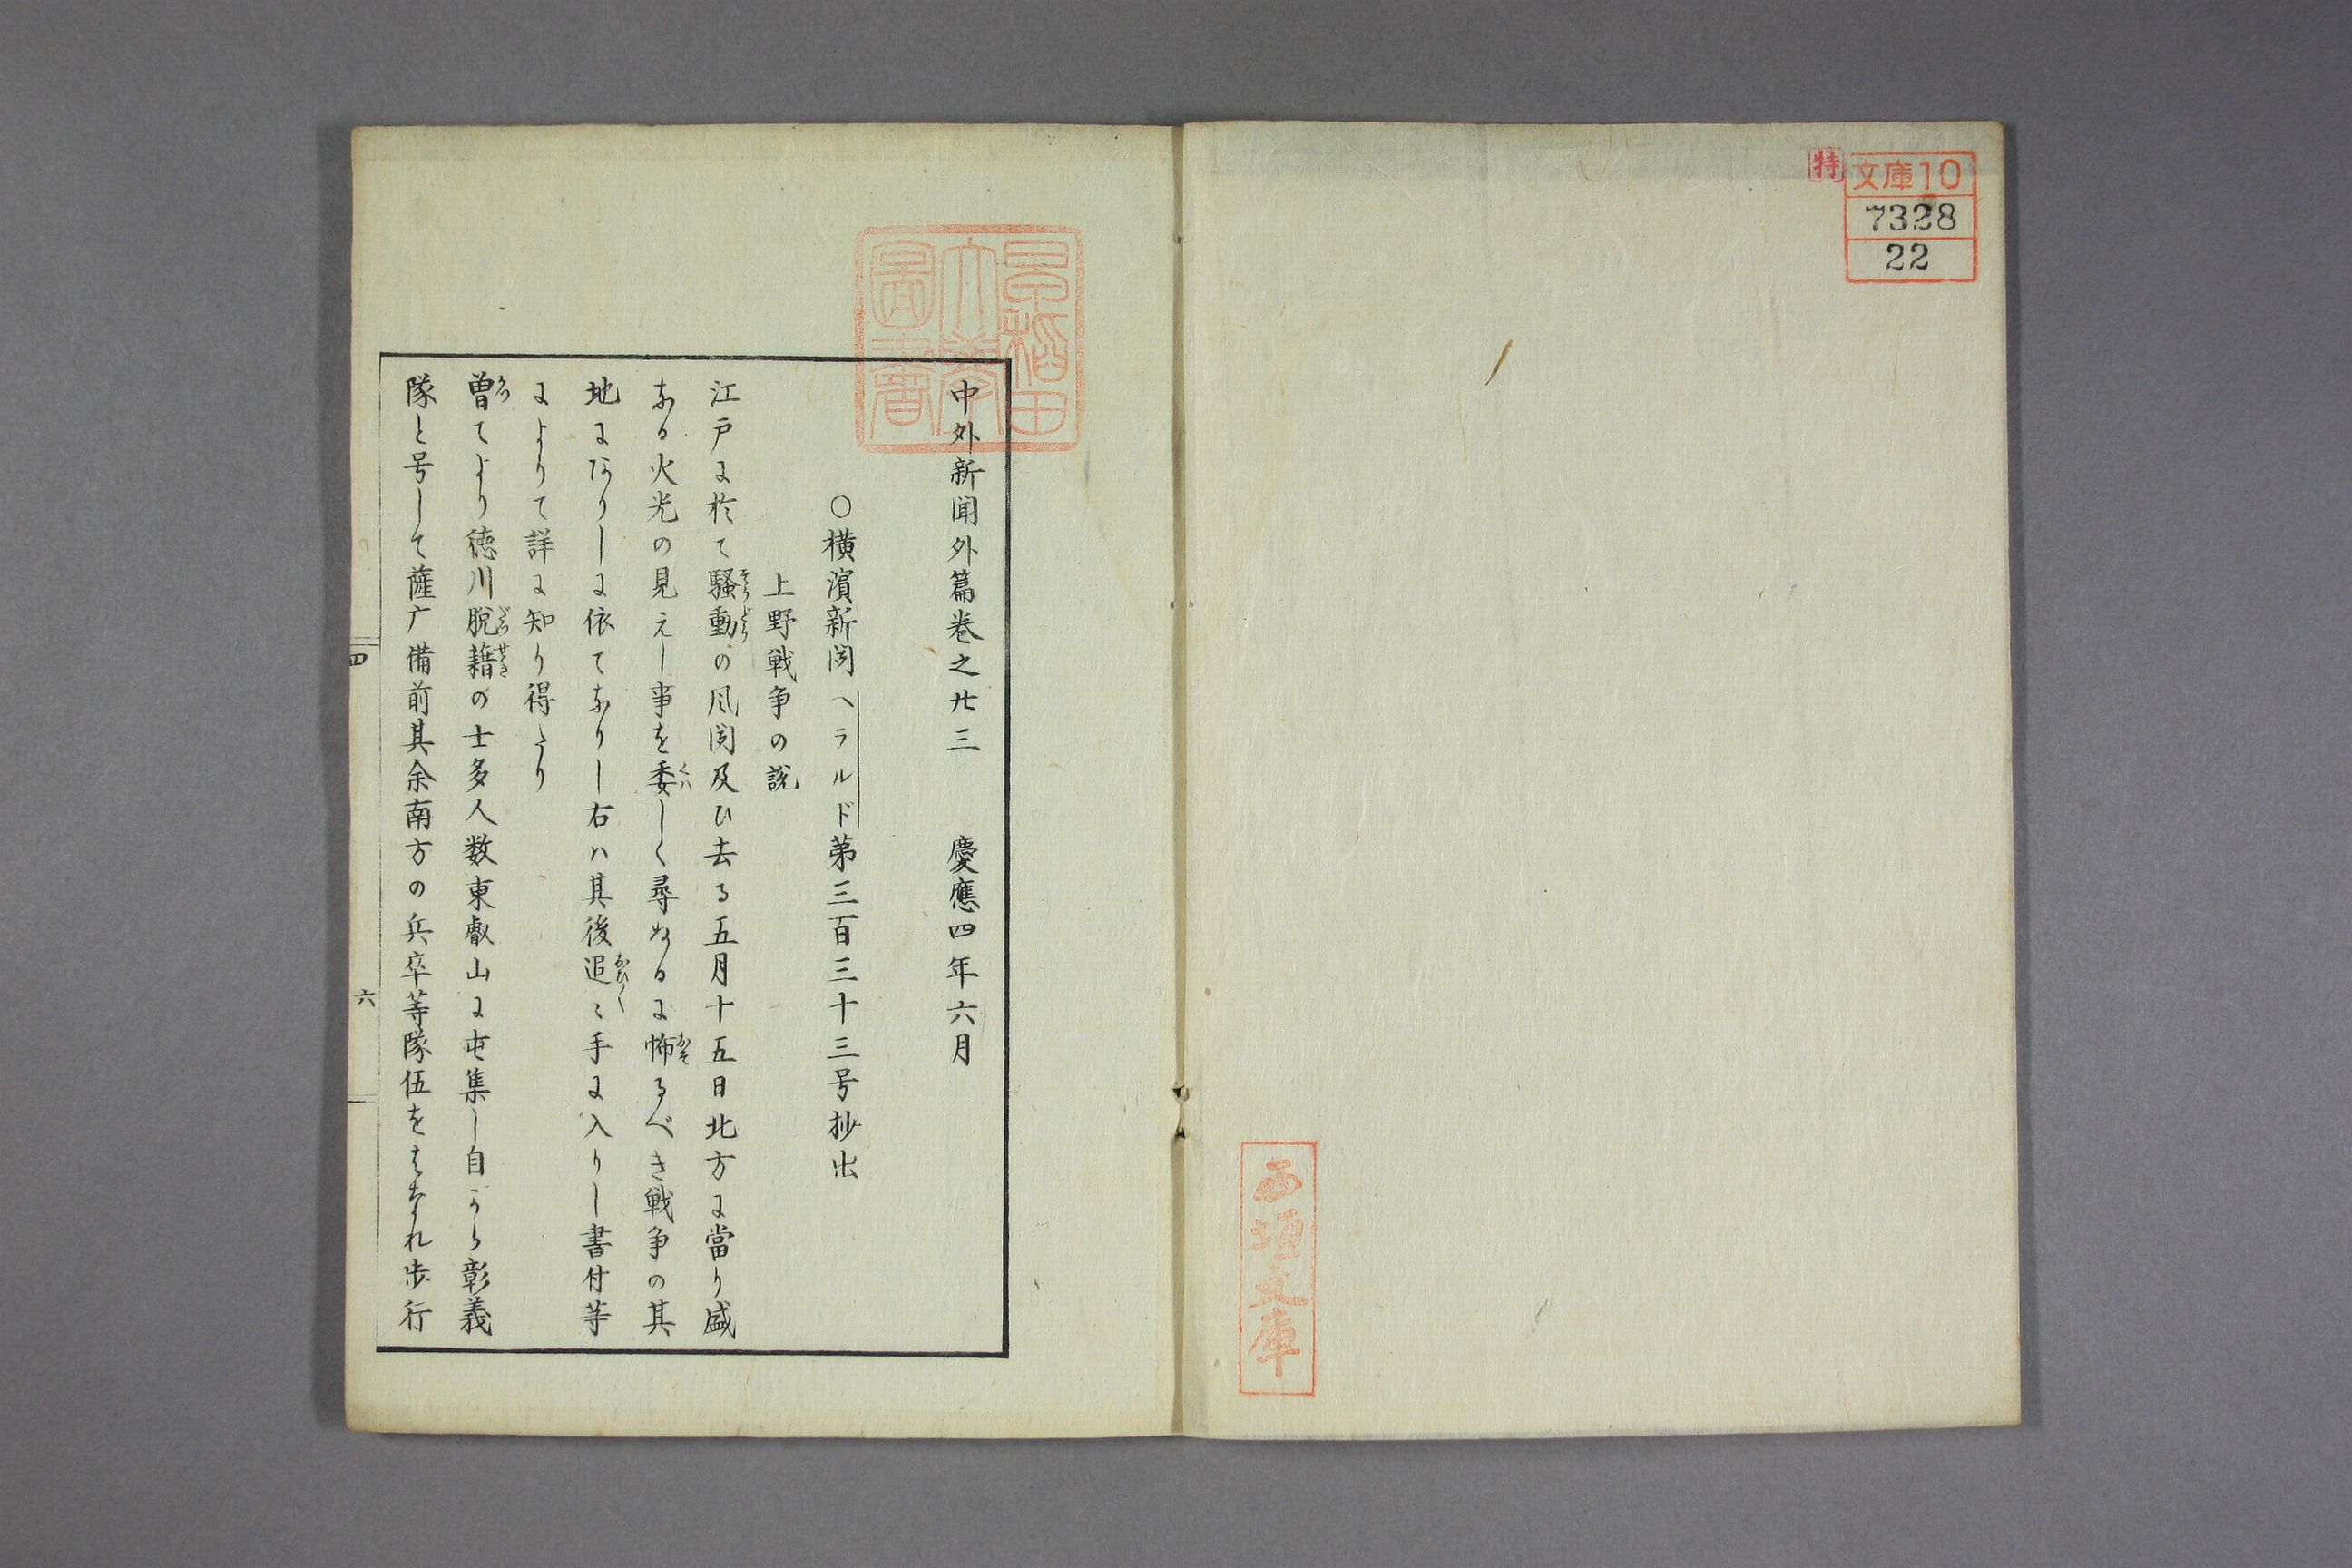 特
文庫10
7328
22
西垣文庫
早稲田大学図書
中外新聞外篇卷之廿三　慶應四年六月
○横濱新聞ヘラルド第三百三十三号抄出
上野戦争の説
江戸に於て騒動の風聞及ひ去る五月十五日北方に當り盛
なる火光の見えし事を委しく尋ぬるに怖るべき戦争の其
地にありしに依てなりし右ハ其後追〻手に入りし書付等
によりて詳に知り得たり
曽てより徳川脱籍の士多人数東叡山に屯集し自から彰義
隊と号して薩广備前其余南方の兵卒等隊伍をはなれ歩行
四
六